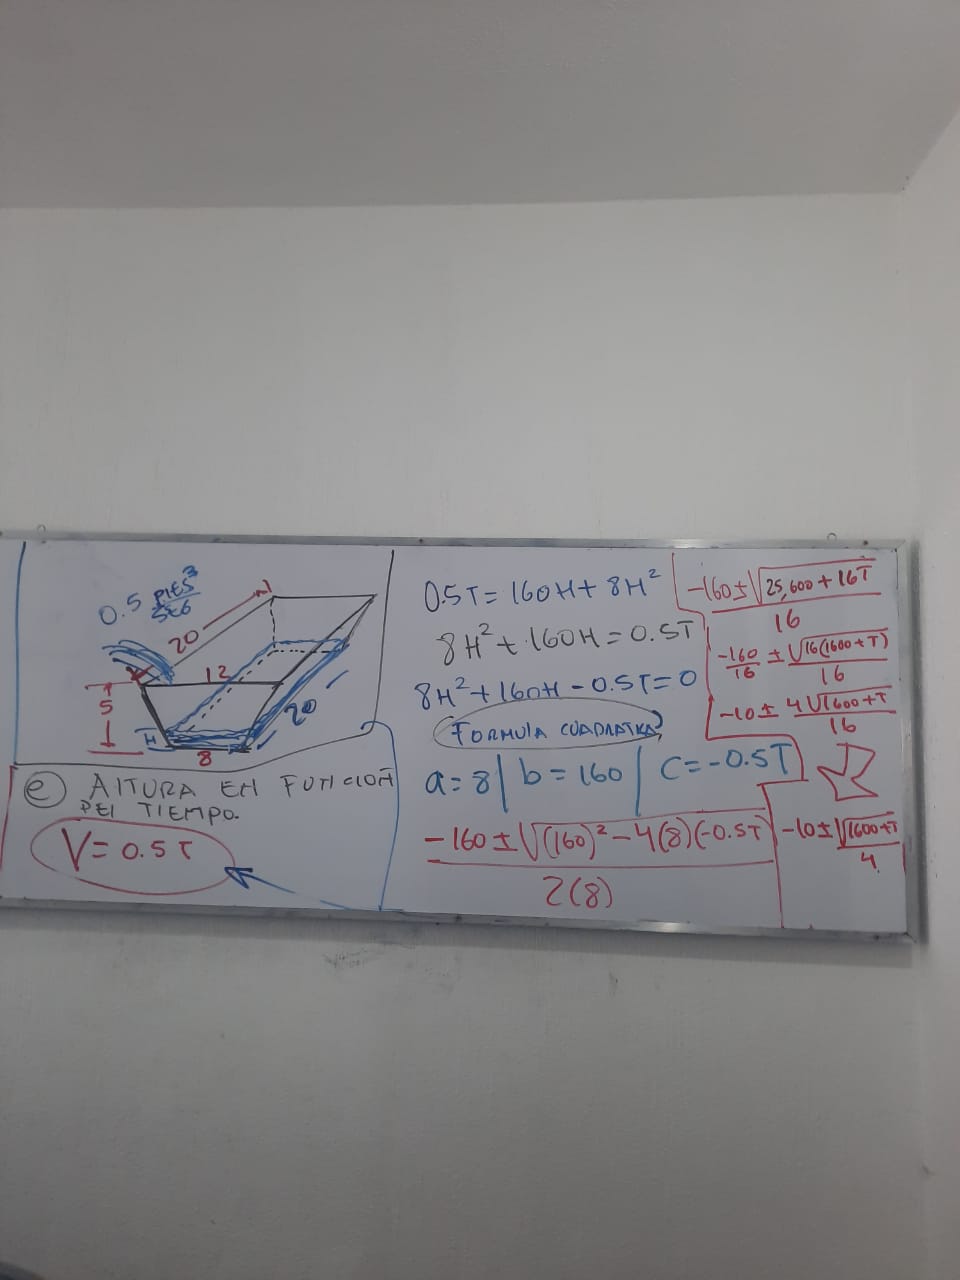 0.5 PIES³
SEG
20
12
5
20
H
8
e) ALTURA EN FUNCION
DEL TIEMPO.
V = 0.5 T
0.5T = 160H + 8H²
8H² + 160H = 0.5T
8H² + 160H - 0.5T = 0
FORMULA CUADRATICA
a = 8 | b = 160 | C = -0.5T
-160 ± √(160)² - 4(8)(-0.5T)
2(8)
-160 ± √25,600 + 16T
16
-160 ± √16(1600 + T)
16 16
-10 ± 4√1600 + T
16
-10 ± √1600 + T
4